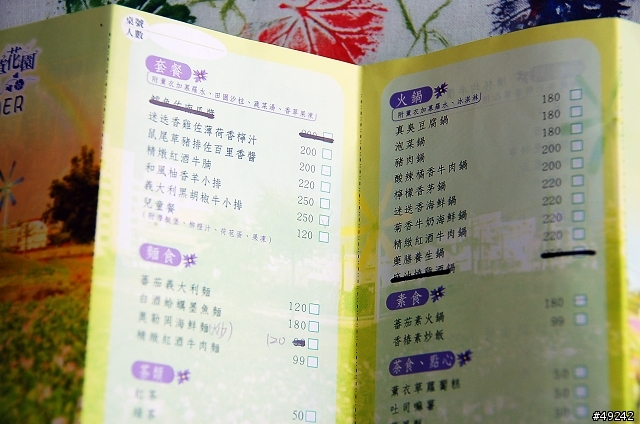 花園
NER
桌號
人數
套餐
(附薰衣加恩羅水、田園沙拉、蔬菜湯、香草果凍)
迷迭香雞佐薄荷香檸汁 200
鼠尾草豬排佐百里香醬 200
精燉紅酒牛腩 200
和風柚香羊小排 220
義大利黑胡椒牛小排 250
兒童餐 250
120
麵食
蕃茄義大利麵
白酒蛤蠣墨魚麵 120
奧勒岡海鮮麵 180
精燉紅酒牛肉麵 120
99
茶類
紅茶
綠茶 50
火鍋
180
真臭豆腐鍋 180
泡菜鍋 180
豬肉鍋 180
酸辣橘香牛肉鍋 220
檸檬香茅鍋 200
迷迭香海鮮鍋 220
菊香牛奶海鮮鍋 220
精緻紅酒牛肉鍋 220
藥膳養生鍋 220
素食
180
蕃茄素火鍋 99
香椿素炒飯
茶食、點心
薰衣草蘿蔔糕 50
吐司嘛薯 50
50
#49242